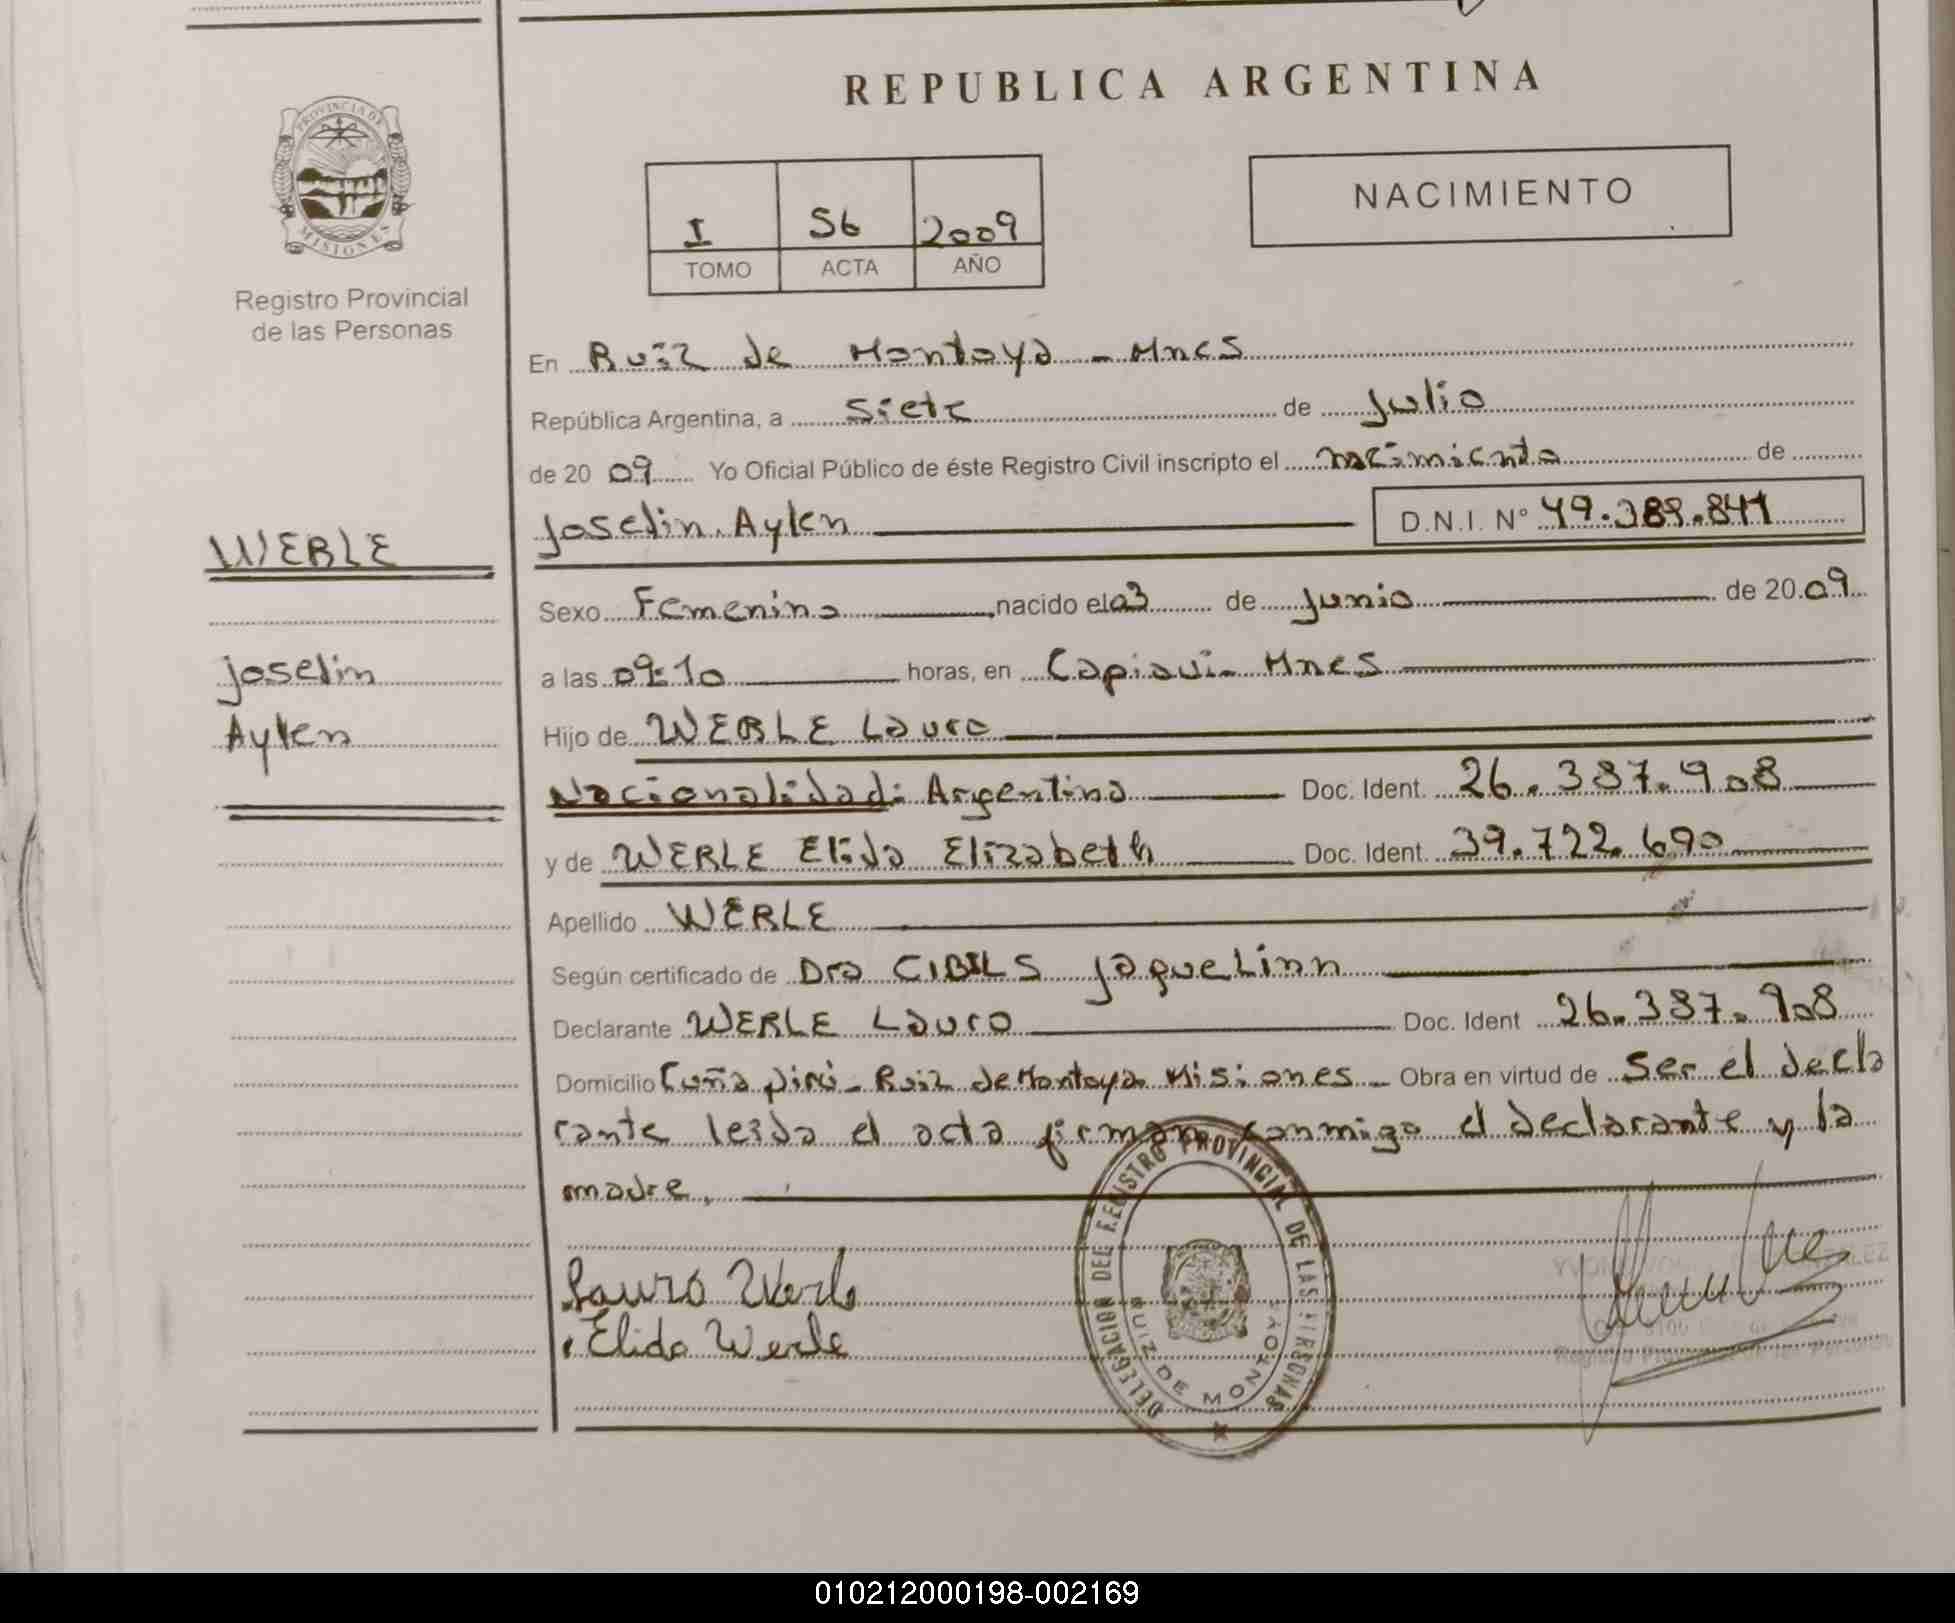 REPUBLICA ARGENTINA
PROVINCIA DE
MISIONES
Registro Provincial
de las Personas
I 56 2009
TOMO ACTA AÑO
NACIMIENTO
En Ruiz de Montoya - Mnes
República Argentina, a siete de Julio
de 20 09 Yo Oficial Público de éste Registro Civil inscripto el nacimiento de
Joselin Aylen D.N.I. N° 49.389.841
WERLE
Joselin
Aylen
Sexo Femenino nacido el 03 de Junio de 20.09
a las 09:10 horas, en Capiovi- Mnes
Hijo de WERLE Lauro
Nacionalidad: Argentina Doc. Ident. 26.387.908
y de WERLE Elida Elizabeth Doc. Ident. 39.722.690
Apellido WERLE
Según certificado de Dra CIBILS Jaquelinn
Declarante WERLE Lauro Doc. Ident 26.387.908
Domicilio Cuña pirú - Ruiz de Montoya Misiones - Obra en virtud de ser el decla
rante leida el acta firman conmigo el declarante y la
madre,
Lauro Werle
Elida Werle
DELEGACION DEL REGISTRO PROVINCIAL DE LAS PERSONAS
RUIZ DE MONTOYA
010212000198-002169